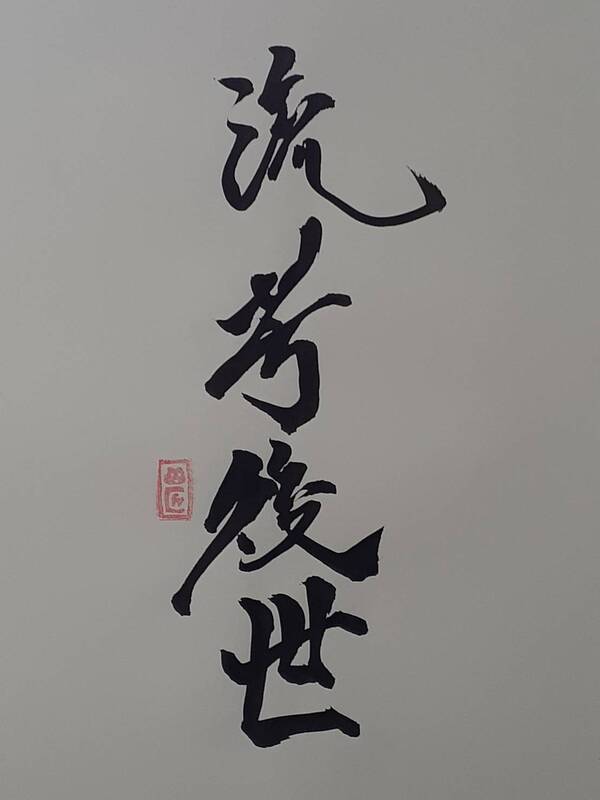 流芳後世